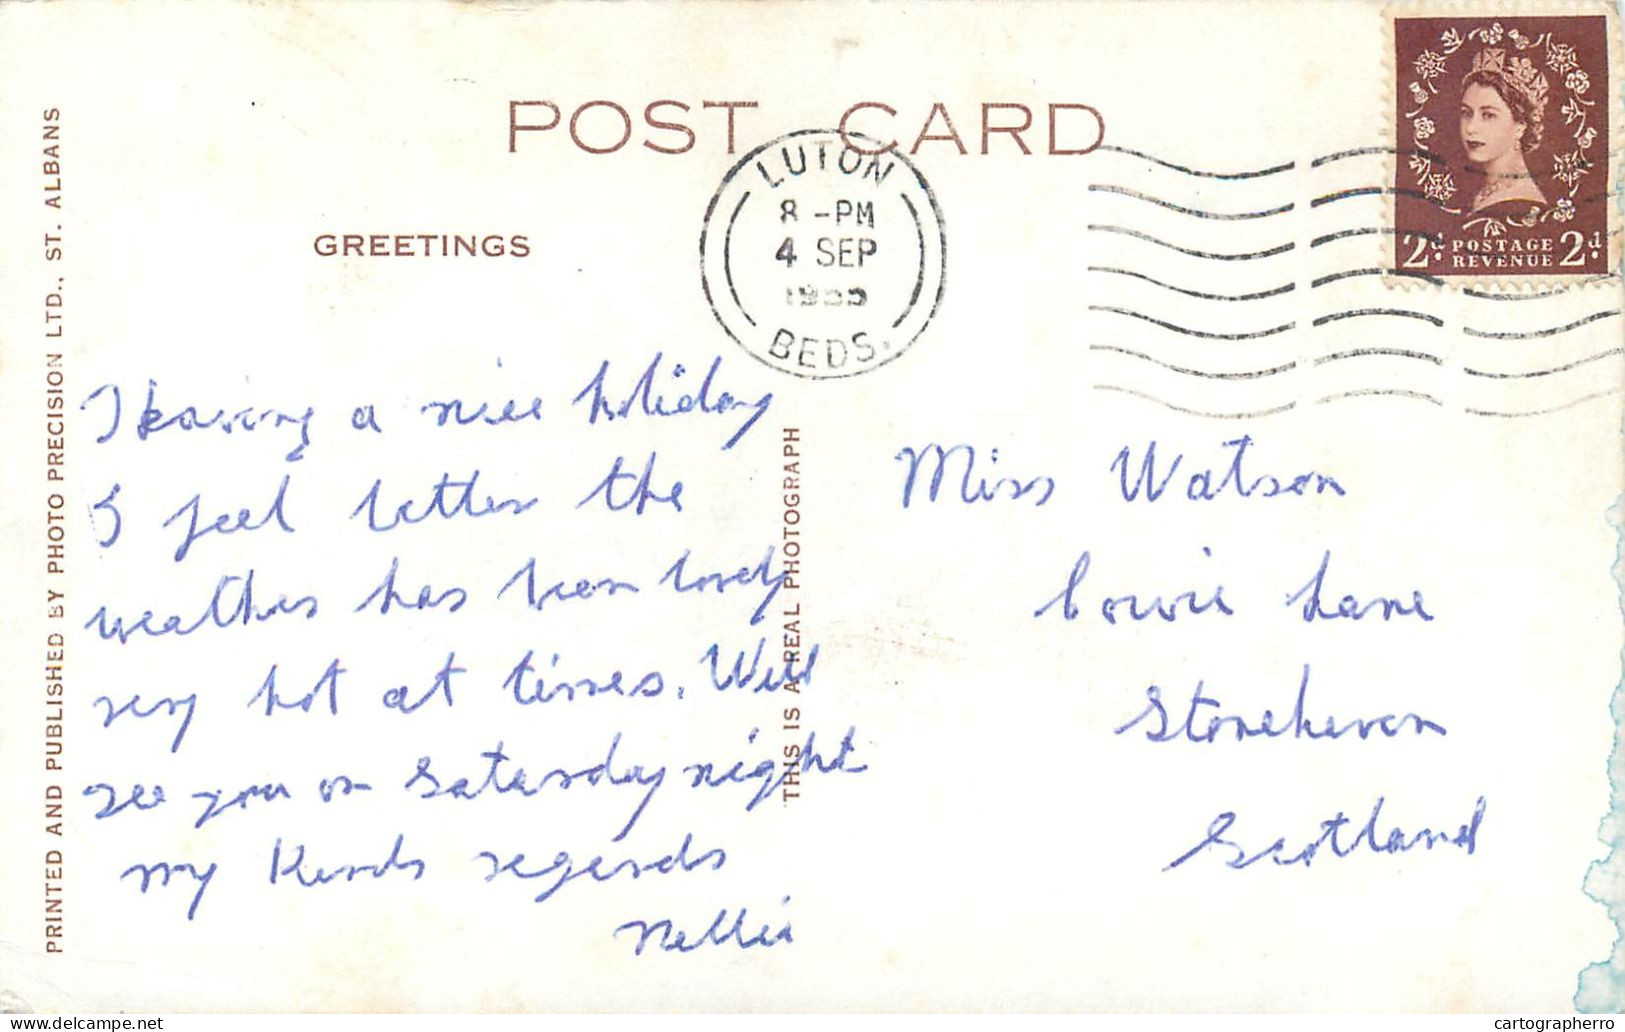 POST CARD
GREETINGS
LUTON
8-PM
4 SEP
1955
BEDS.
2d. POSTAGE REVENUE 2d.
PRINTED AND PUBLISHED BY PHOTO PRECISION LTD., ST. ALBANS
THIS IS A REAL PHOTOGRAPH
I having a nice holiday
I feel better the
weather has been lovely
very hot at times. Will
see you on Saturday night
my Kinds regards
Nellie
Miss Watson
Cowie Lane
Stonehaven
Scotland
delcampe.net
cartographerro